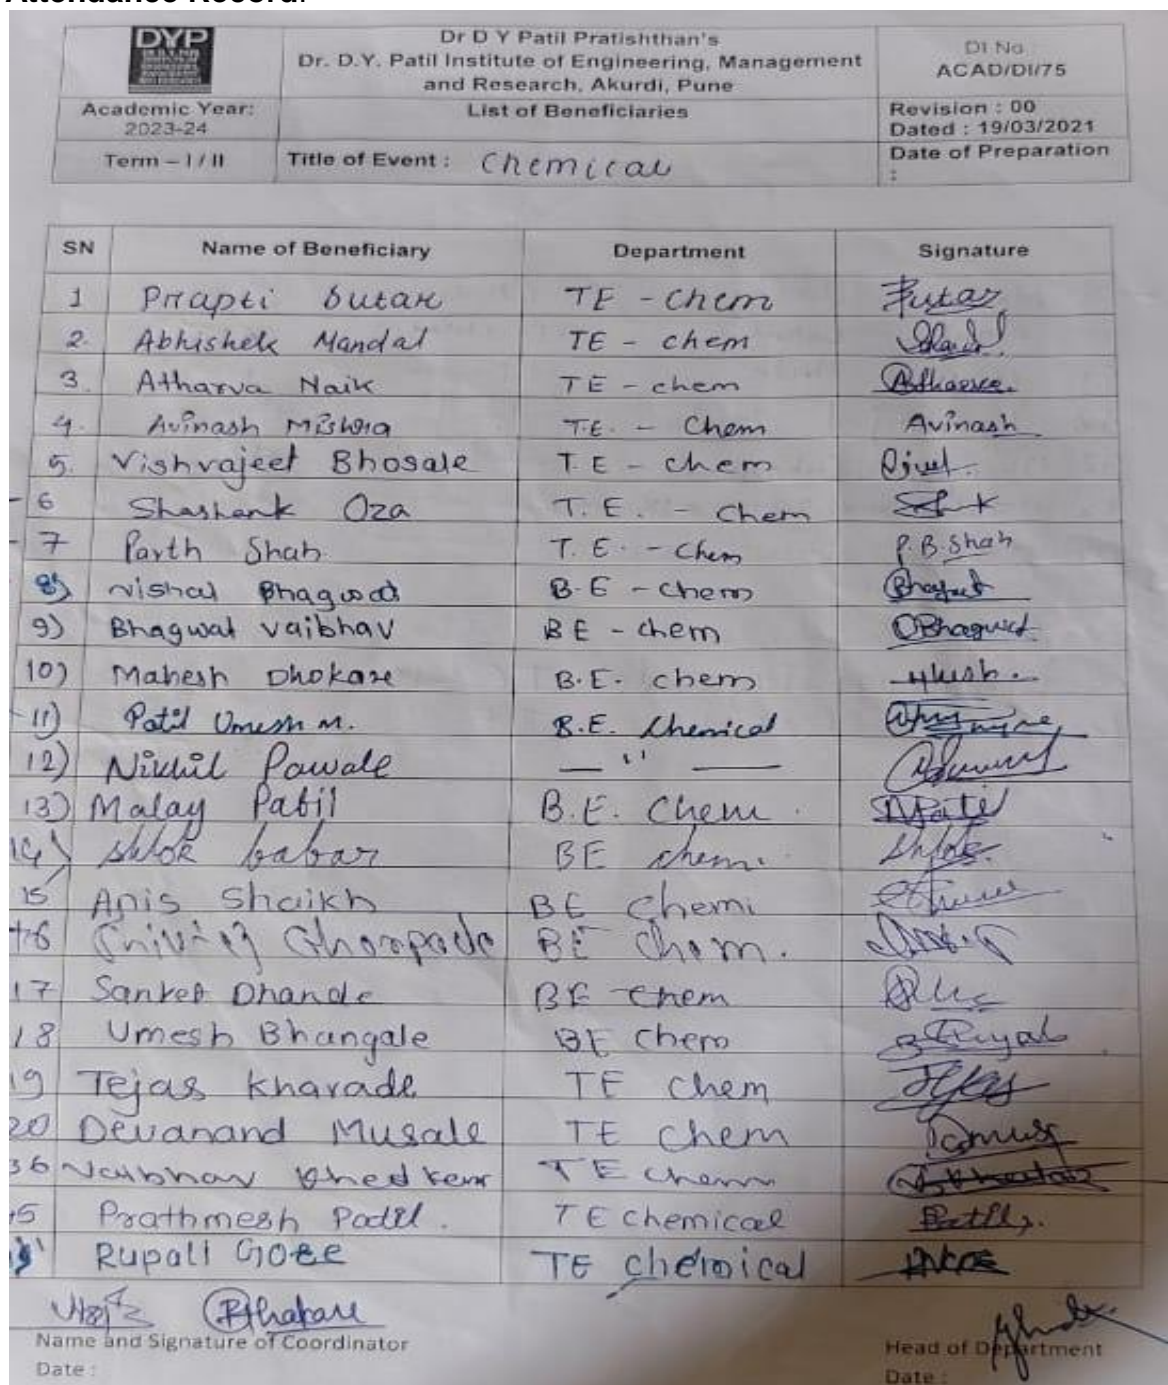 Attendance Record:
DYP
Dr D Y Patil Pratishthan's
Dr. D.Y. Patil Institute of Engineering, Management
and Research, Akurdi, Pune
DI No
ACAD/DI/75
Academic Year:
2023-24
List of Beneficiaries
Revision : 00
Dated : 19/03/2021
Term – I / II
Title of Event : Chemical
Date of Preparation
:
SN Name of Beneficiary Department Signature
1 Prapti Sutar TE - chem Sutar
2. Abhishek Mandal TE - chem
3. Atharva Naik TE - chem Atharva.
4. Avinash Mishra T.E. - Chem Avinash
5. Vishvajeet Bhosale T.E - chem
6 Shashank Oza T.E. - Chem
7 Parth Shah T.E. - Chem P.B.Shah
8) Vishal Bhagwat B.E - chem
9) Bhagwat Vaibhav BE - chem Bhagwat
10) Mahesh Dhokare B.E. chem
11) Patil Umesh M. B.E. Chemical
12) Nikhil Pawale — " —
13) Malay Patil B.E. Chem. Patil
14) Shlok babar BE chem. Shlok
15 Anis Shaikh BE Chemi
16 Ghorpade BE Chem.
17 Sanket Dhande BE Chem
18 Umesh Bhangale BE Chem
19 Tejas Kharade TE Chem Tejas
20 Devanand Musale TE Chem
36 Vaibhav Khedkar TE Chem
Prathmesh Patil. TE Chemical Patil
Rupali Gore TE Chemical
Name and Signature of Coordinator
Date :
Head of Department
Date :